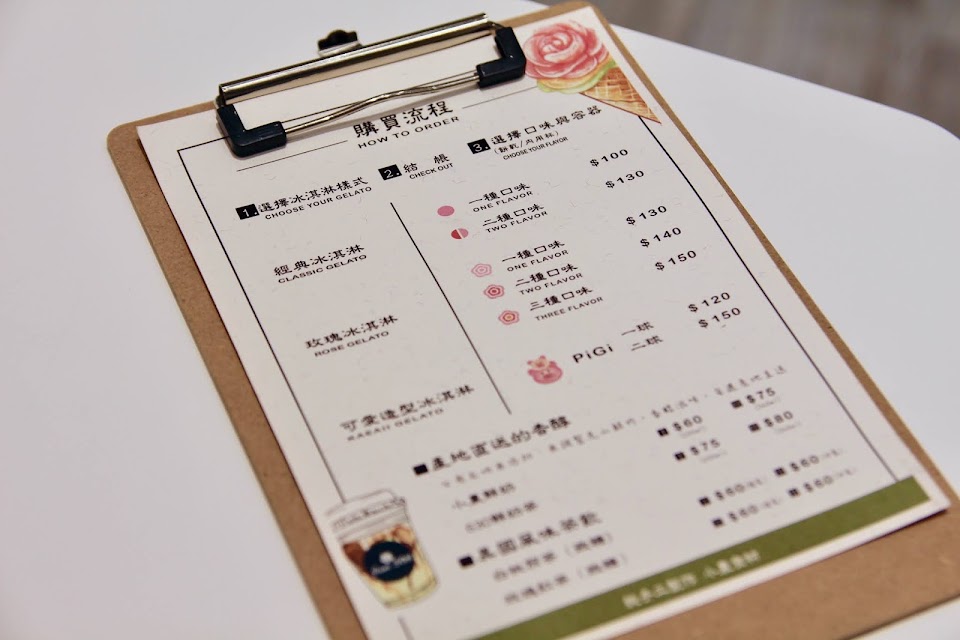 購買流程
HOW TO ORDER
1.選擇冰淇淋樣式
CHOOSE YOUR GELATO
2.結 帳
CHECK OUT
3.選擇口味與容器
(餅乾/內用杯)
CHOOSE YOUR FLAVOR
經典冰淇淋
CLASSIC GELATO
一種口味 $100
ONE FLAVOR
二種口味 $130
TWO FLAVOR
玫瑰冰淇淋
ROSE GELATO
一種口味 $130
ONE FLAVOR
二種口味 $140
TWO FLAVOR
三種口味 $150
THREE FLAVOR
可愛造型冰淇淋
KAEAII GELATO
PiGi 一球 $120
二球 $150
■產地直送的香醇
小農鮮奶 ■$60 ■$75
■$75 ■$80
■$60 ■$60
■$60 ■$60